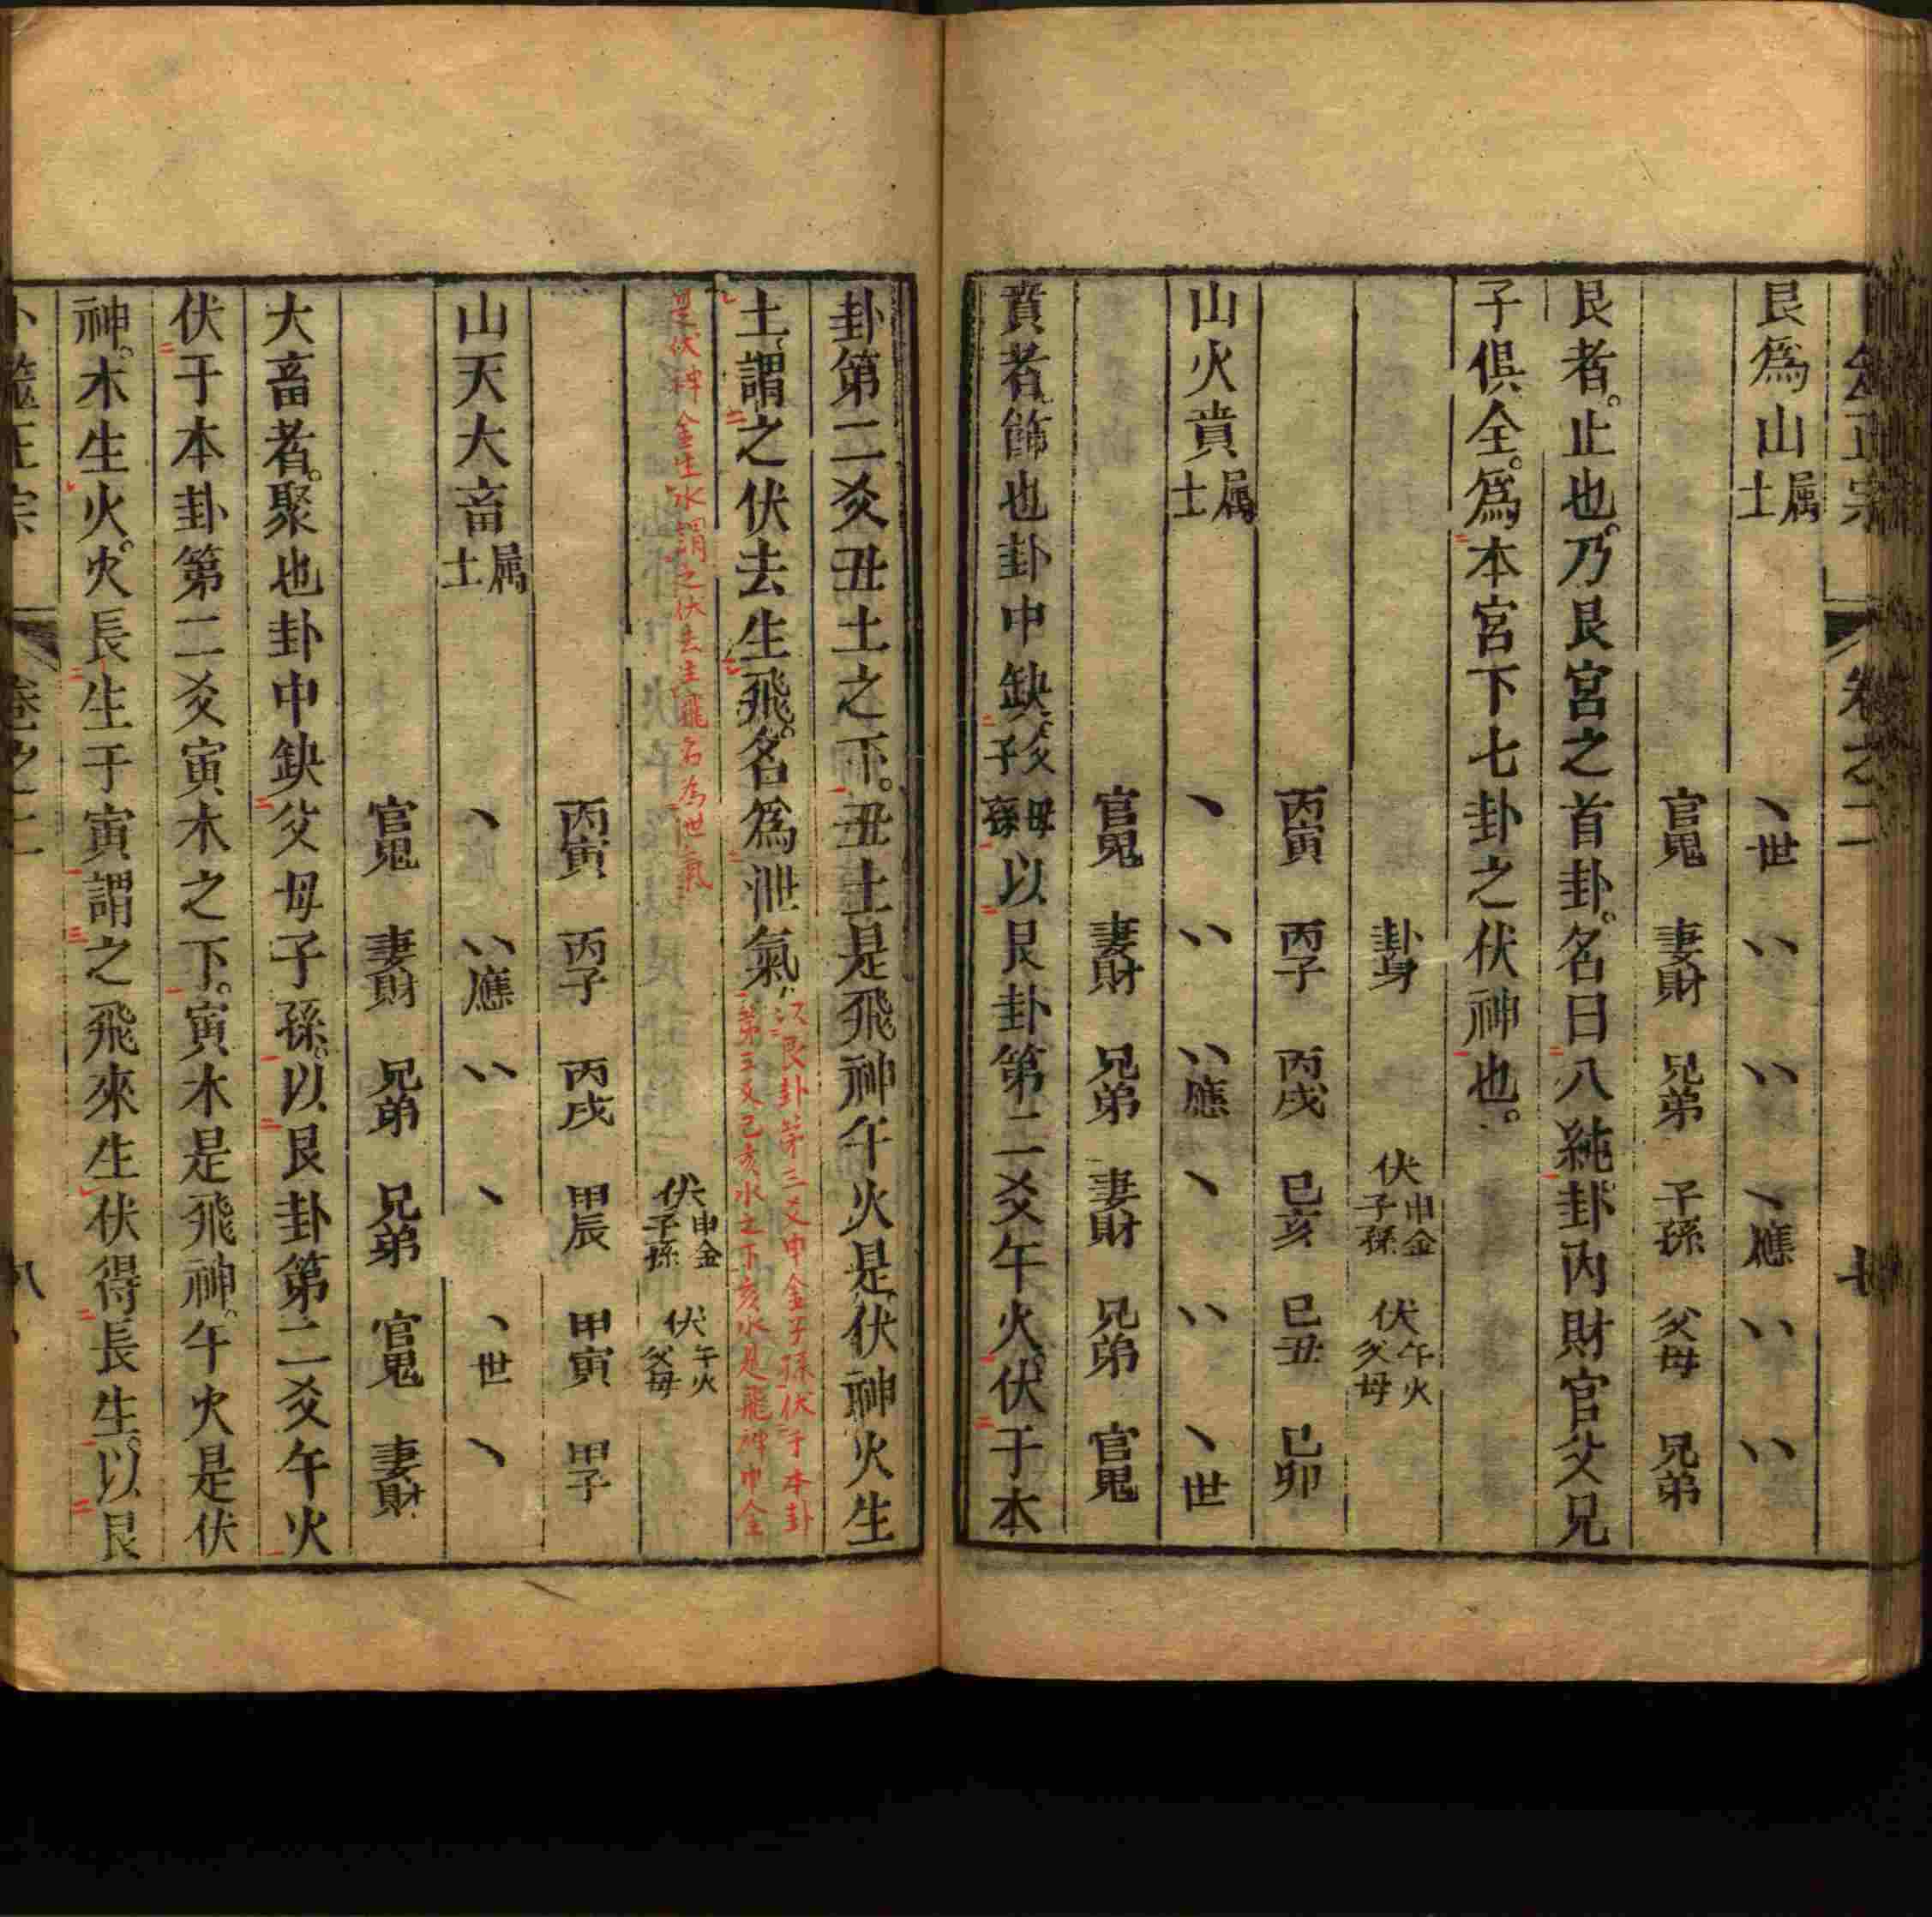 艮爲山屬土
丶世 丷 丷 丶應 丷 丷
官鬼 妻財 兄弟 子孫 父母 兄弟
艮者。止也。乃艮宮之首卦。名曰八純卦。內財官父兄
子俱全。爲本宮下七卦之伏神也。
卦身 伏申金子孫 伏午火父母
丙寅 丙子 丙戌 己亥 己丑 己卯
山火賁屬土
丶 丷 丷應 丶 丷 丶世
官鬼 妻財 兄弟 妻財 兄弟 官鬼
賁者飾也卦中缺父母子孫以艮卦第二爻午火。伏于本
卦第二爻丑土之下。丑土是飛神午火是伏神火生
土謂之伏去生飛。名爲泄氣。次艮卦第三爻申金子孫伏于本卦
第三爻己亥水之下亥水是飛神申金
是伏神金生水謂之伏去生飛名為世氣
伏申金子孫 伏午火父母
丙寅 丙子 丙戌 甲辰 甲寅 甲子
山天大畜屬土
丶 丷應 丷 丶 丶世 丶
官鬼 妻財 兄弟 兄弟 官鬼 妻財
大畜者。聚也卦中缺父母子孫。以艮卦第二爻午火
伏于本卦第二爻寅木之下。寅木是飛神。午火是伏
神。木生火。火長生于寅謂之飛來生伏得長生。以艮
卜筮正宗 卷之二 八